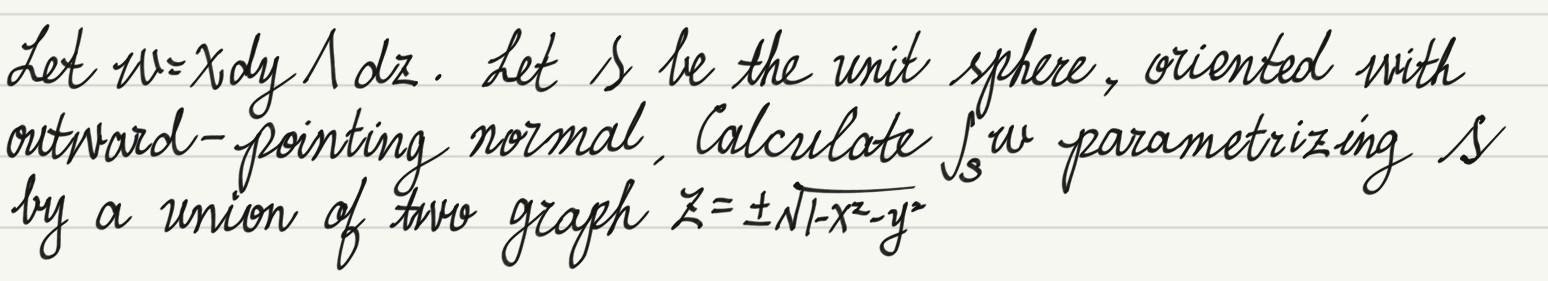 Let w=xdy∧dz. Let S be the unit sphere, oriented with
outward-pointing normal. Calculate ∫_S w parametrizing S
by a union of two graph z=±√(1-x²-y²)